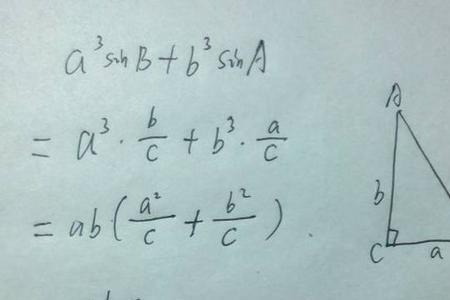 a³ sin B + b³ sin A
= a³ · b/c + b³ · a/c
= ab (a²/c + b²/c) .
A
b
C
a